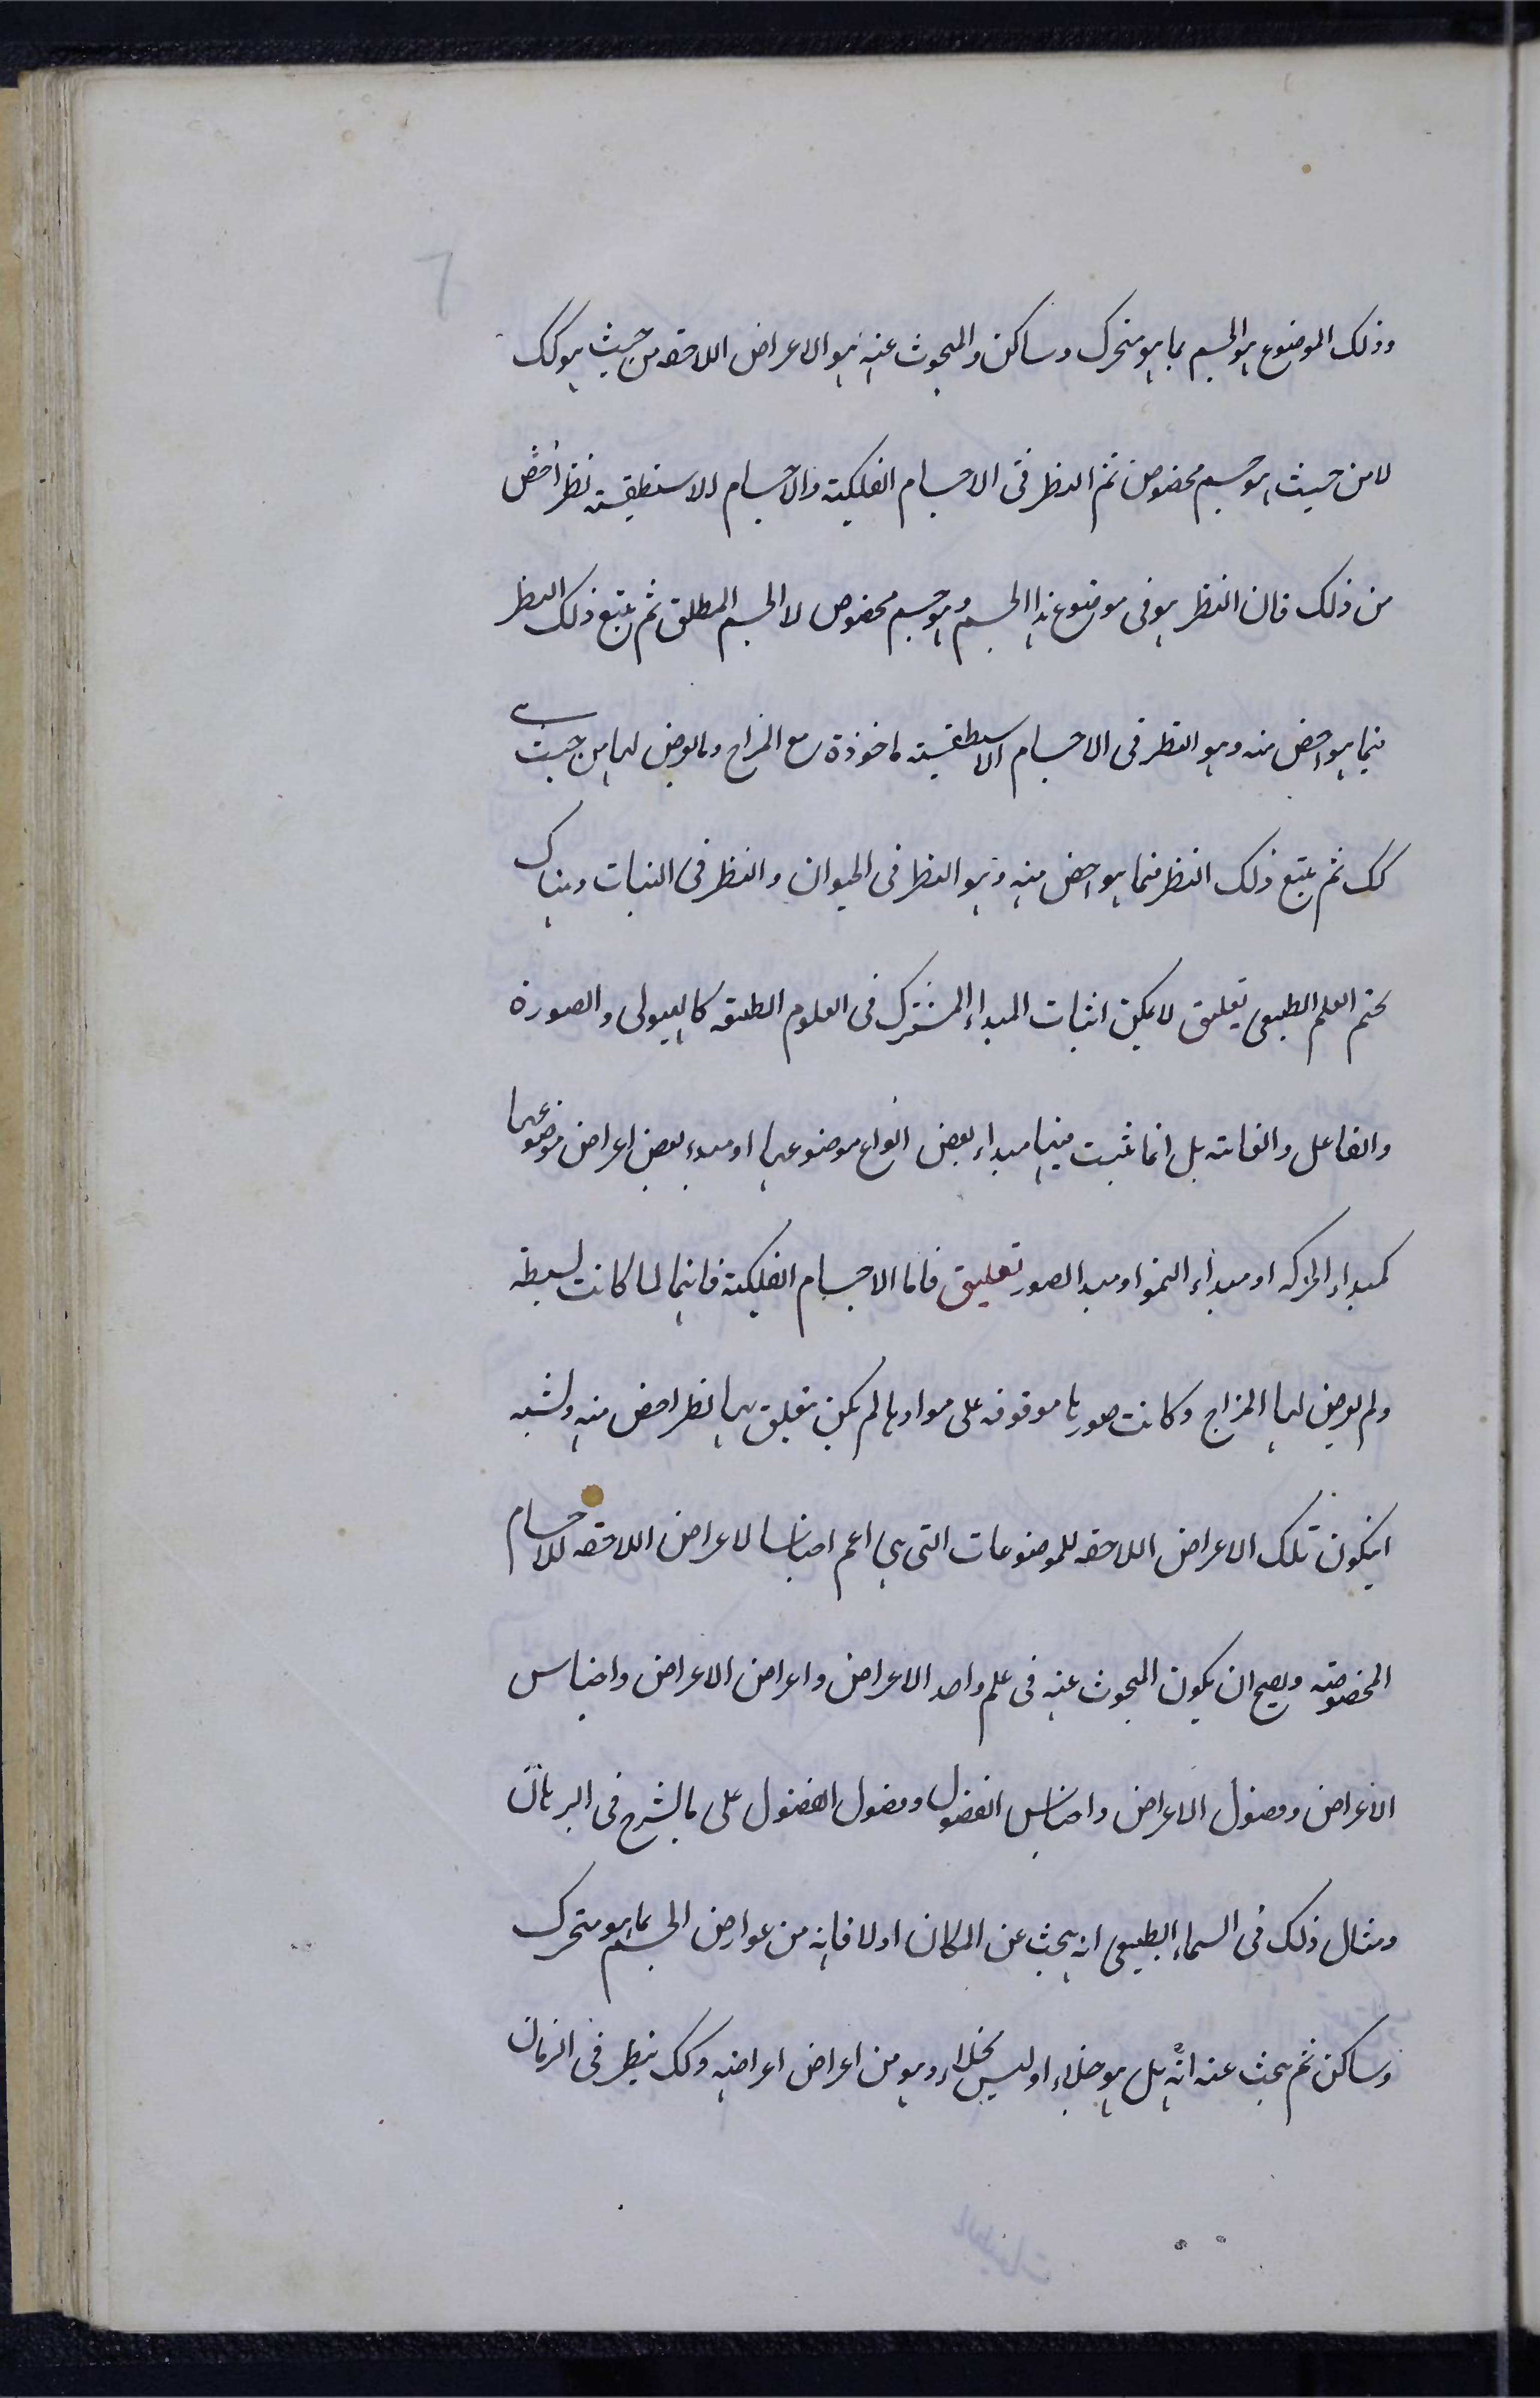 وذلك الموضوع هو الجسم بما هو متحرك وساكن والمبحوث عنه هو الاعراض اللاحقه من حيث هو كك
لا من حيث هو جسم مخصوص ثم النظر فى الاجسام الفلكية والاجسام الاسطقسية نظر اخص
من ذلك فان النظر هو فى موضوع هذا الجسم وهو جسم مخصوص لا الجسم المطلق ثم يتبع ذلك النظر
فيما هو اخص منه وهو النظر فى الاجسام الاسطقسية ماخوذة مع المزاج وما يعرض لها من حيث هى
كك ثم يتبع ذلك النظر فيما هو اخص منه وهو النظر فى الحيوان والنظر فى النبات وهناك
يختم العلم الطبيعى تعليق لا يمكن اثبات المبداء المشترك فى العلوم الطبيعيه كالهيولى والصورة
والفاعل والغايه بل انما يثبت فيها مبداء بعض انواع موضوعها او مبدء بعض اعراض موضوعها
كمبداء الحركه او مبداء النمو او مبدا الصور تعليق فاما الاجسام الفلكية فانها لما كانت بسيطه
ولم يعرض لها المزاج وكانت صورها موقوفه على موادها لم يكن يتعلق بها نظر اخص منه ولنسبه
ان يكون تلك الاعراض اللاحقه للموضوعات التى هى اعم اجناسا لاعراض اللاحقه للاجسام
المخصوصه ويصح ان يكون المبحوث عنه فى علم واحد الاعراض واعراض الاعراض واجناس
الاعراض وفصول الاعراض واجناس الفصول وفصول الفصول على ما يشرح فى البرهان
ومثال ذلك فى السماء الطبيعى انه يبحث عن المكان اولا فانه من عوارض الجسم بما هو متحرك
وساكن ثم يبحث عنه انه هل هو خلاء او ليس بخلاء وهو من اعراض اعراضه وكك ينظر فى الزمان